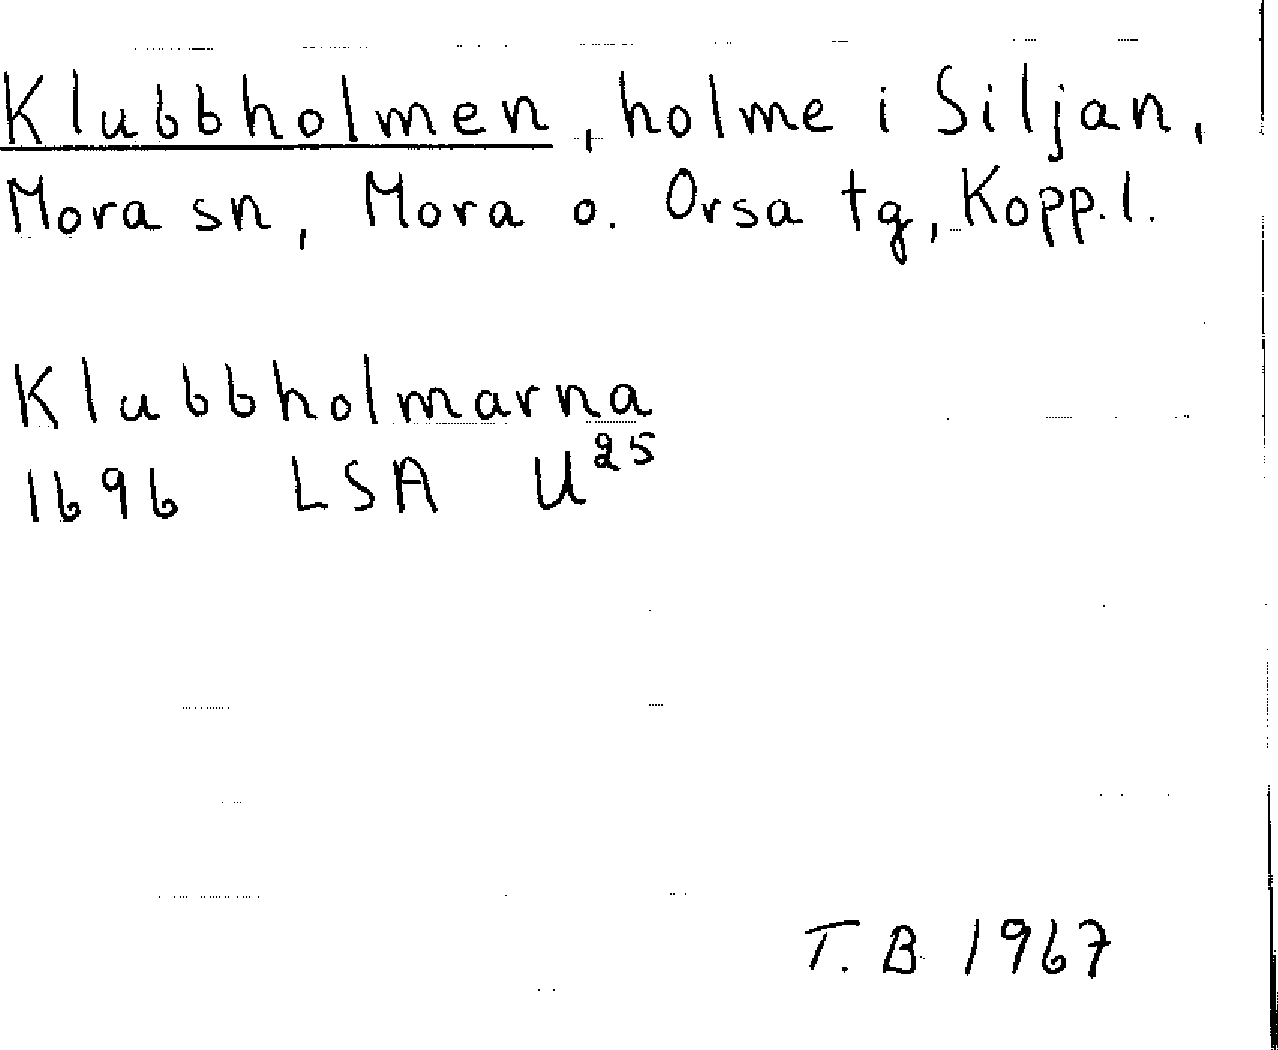 Klubbholmen, holme i Siljan,
Mora sn, Mora o. Orsa tg, Kopp.l.
Klubbholmarna
1696 LSA U²⁵
T.B 1967